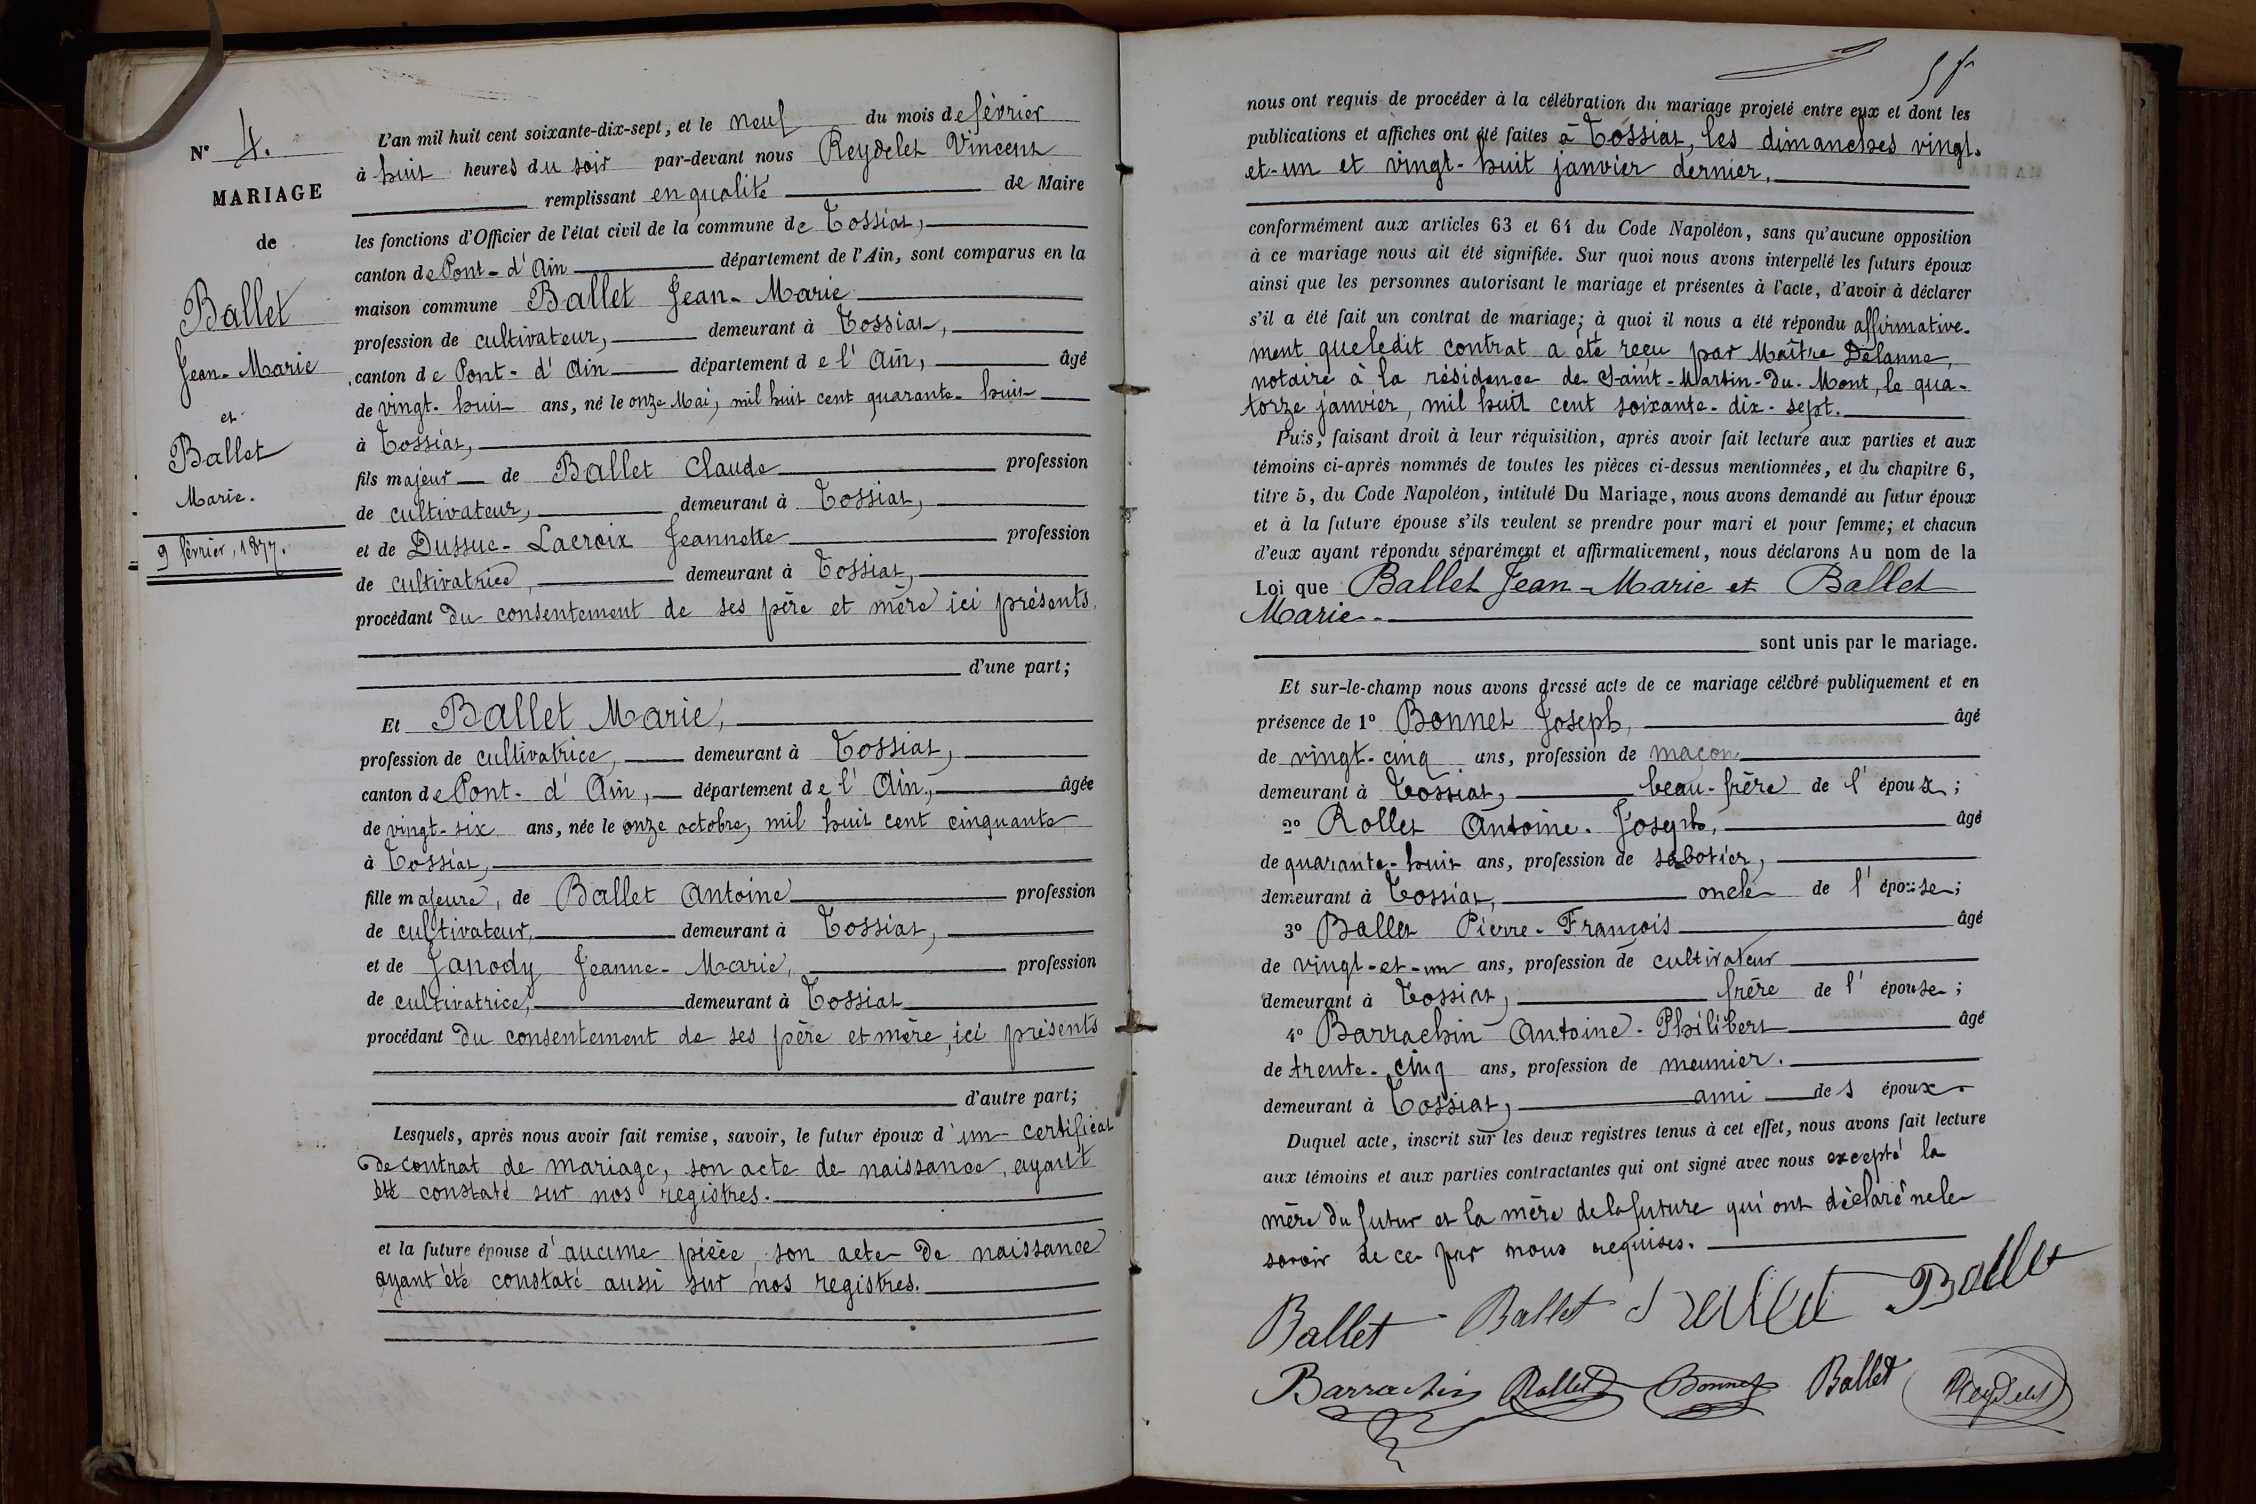 N° 4.
MARIAGE
de
Ballet
Jean-Marie
et
Ballet
Marie.
9 février, 1877.
L'an mil huit cent soixante-dix-sept, et le neuf du mois de février
à huit heures du soir par-devant nous Reydelet Vincent
remplissant en qualité de Maire
les fonctions d'Officier de l'état civil de la commune de Tossiat,
canton de Pont-d'Ain département de l'Ain, sont comparus en la
maison commune Ballet Jean-Marie
profession de cultivateur, demeurant à Tossiat,
canton de Pont-d'Ain département de l'Ain, âgé
de vingt-huit ans, né le onze Mai, mil huit cent quarante-huit
à Tossiat,
fils majeur de Ballet Claude profession
de cultivateur, demeurant à Tossiat,
et de Dussuc-Lacroix Jeannette profession
de cultivatrice, demeurant à Tossiat,
procédant du consentement de ses père et mère ici présents.
d'une part;
Et Ballet Marie,
profession de cultivatrice, demeurant à Tossiat,
canton de Pont-d'Ain, département de l'Ain, âgée
de vingt-six ans, née le onze octobre, mil huit cent cinquante
à Tossiat,
fille majeure, de Ballet Antoine profession
de cultivateur, demeurant à Tossiat,
et de Janody Jeanne-Marie, profession
de cultivatrice, demeurant à Tossiat
procédant du consentement de ses père et mère, ici présents
d'autre part;
Lesquels, après nous avoir fait remise, savoir, le futur époux d'un certificat
de contrat de mariage, son acte de naissance, ayant
été constaté sur nos registres.
et la future épouse d'aucune pièce, son acte de naissance
ayant été constaté aussi sur nos registres.
nous ont requis de procéder à la célébration du mariage projeté entre eux et dont les
publications et affiches ont été faites à Tossiat, les dimanches vingt-
et-un et vingt-huit janvier dernier,
conformément aux articles 63 et 64 du Code Napoléon, sans qu'aucune opposition
à ce mariage nous ait été signifiée. Sur quoi nous avons interpellé les futurs époux
ainsi que les personnes autorisant le mariage et présentes à l'acte, d'avoir à déclarer
s'il a été fait un contrat de mariage; à quoi il nous a été répondu affirmative-
ment que ledit contrat a été reçu par Maître Delanne,
notaire à la résidence de Saint-Martin-du-Mont, le qua-
torze janvier, mil huit cent soixante-dix-sept.
Puis, faisant droit à leur réquisition, après avoir fait lecture aux parties et aux
témoins ci-après nommés de toutes les pièces ci-dessus mentionnées, et du chapitre 6,
titre 5, du Code Napoléon, intitulé Du Mariage, nous avons demandé au futur époux
et à la future épouse s'ils veulent se prendre pour mari et pour femme; et chacun
d'eux ayant répondu séparément et affirmativement, nous déclarons Au nom de la
Loi que Ballet Jean-Marie et Ballet
Marie
sont unis par le mariage.
Et sur-le-champ nous avons dressé acte de ce mariage célébré publiquement et en
présence de 1° Bonnet Joseph, âgé
de vingt-cinq ans, profession de maçon
demeurant à Tossiat, beau-frère de l'époux;
2° Rollet Antoine-Joseph, âgé
de quarante-huit ans, profession de sabotier,
demeurant à Tossiat, oncle de l'épouse;
3° Ballet Pierre-François âgé
de vingt-et-un ans, profession de cultivateur
demeurant à Tossiat, frère de l'épouse;
4° Barrachin Antoine-Philibert âgé
de trente-cinq ans, profession de meunier.
demeurant à Tossiat, ami des époux.
Duquel acte, inscrit sur les deux registres tenus à cet effet, nous avons fait lecture
aux témoins et aux parties contractantes qui ont signé avec nous excepté la
mère du futur et la mère de la future qui ont déclaré ne le
savoir de ce par nous requises.
Ballet Ballet Ballet
Barrachin Rollet Bonnet Ballet Reydelet